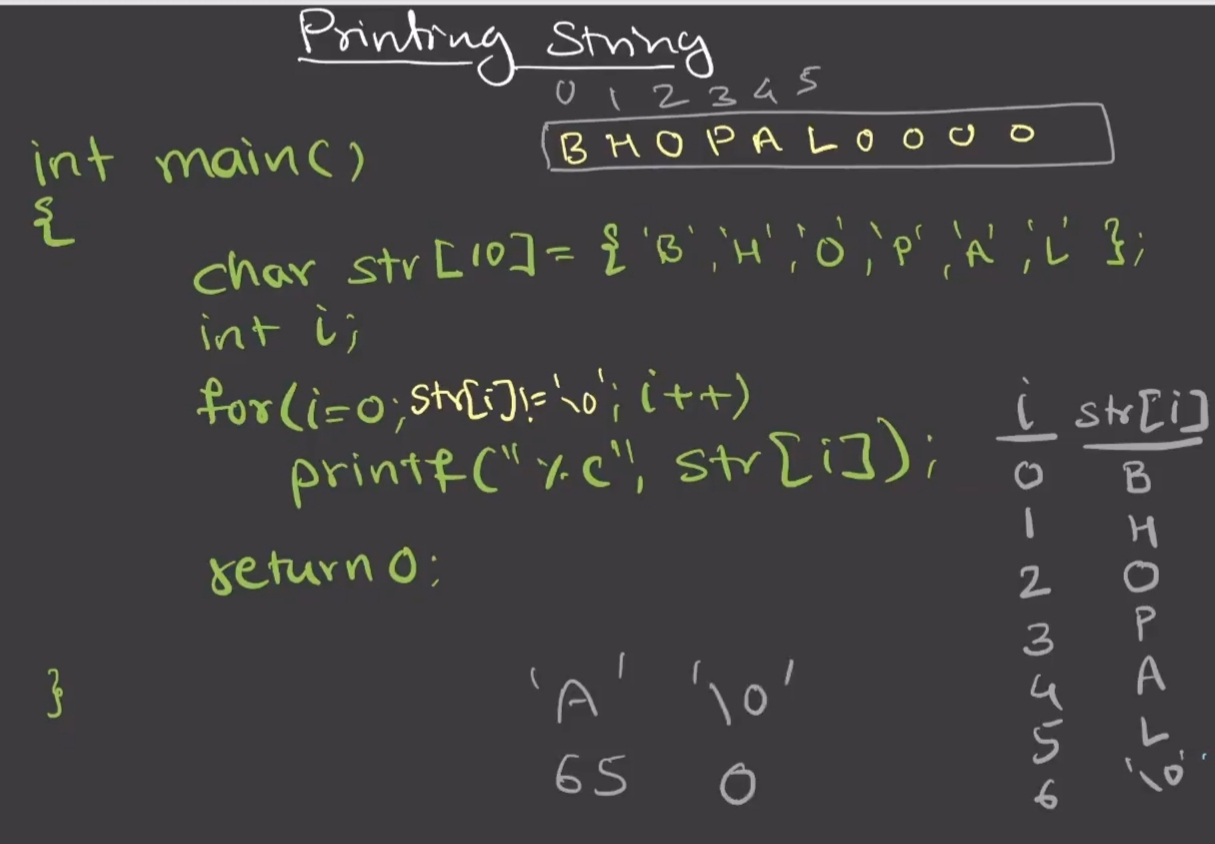 Printing String
0 1 2 3 4 5
B H O P A L 0 0 0 0
int main()
{
char str[10]= { 'B', 'H', 'O', 'P', 'A', 'L' };
int i;
for(i=0; str[i]!='\0'; i++)
printf("%c", str[i]);
return 0;
}
'A' '\0'
65 0
i str[i]
0 B
1 H
2 O
3 P
4 A
5 L
6 '\0'